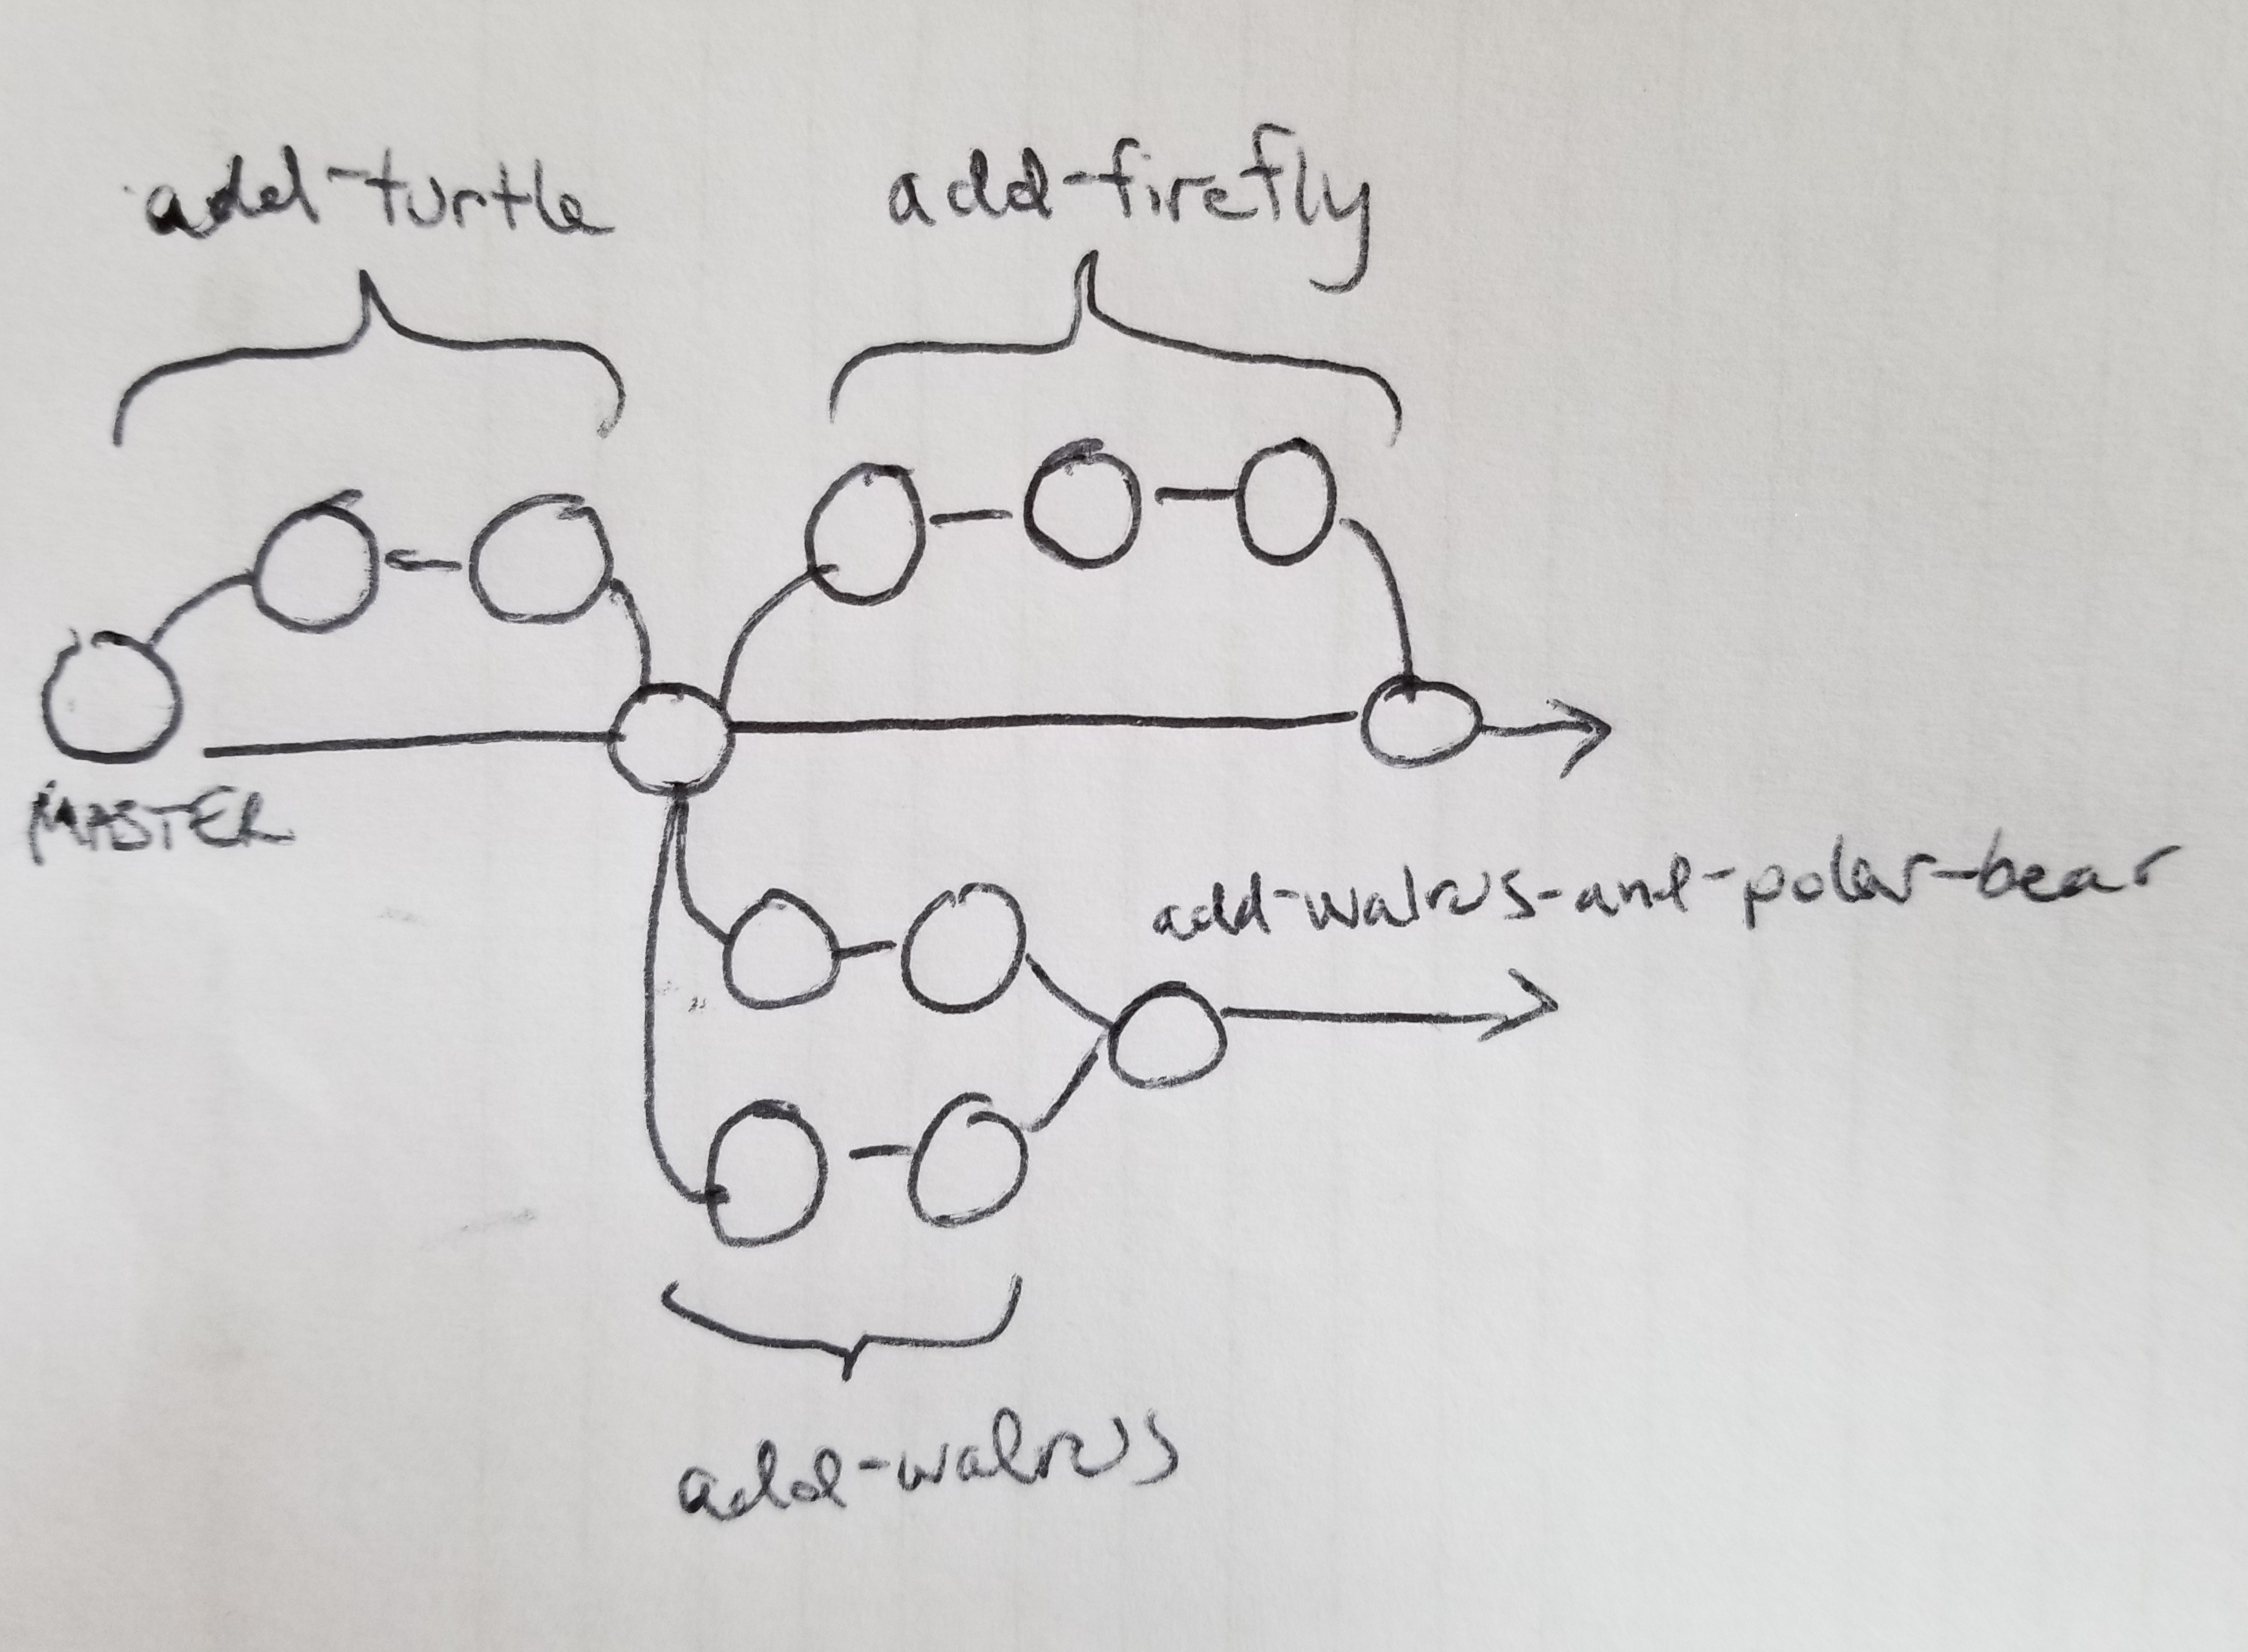 add-turtle
add-firefly
MASTER
add-walrus-and-polar-bear
add-walrus